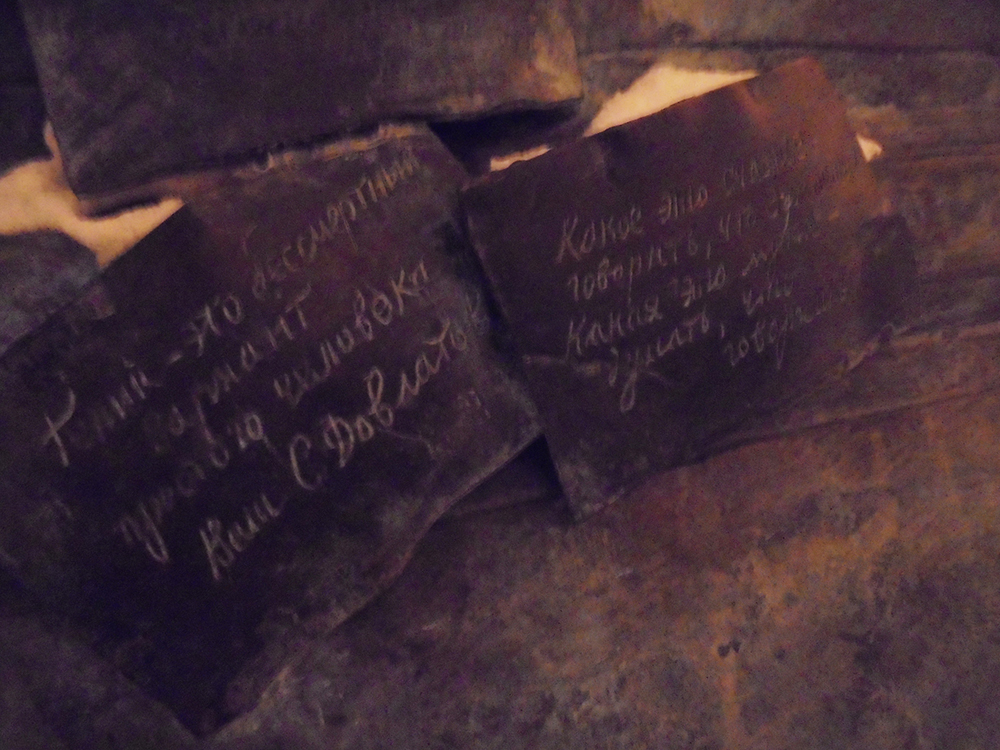 Гений - это бессмертный
вариант
простого человека
Ваш С. Довлатов
Какое это счастье
говорить, что думаешь!
Какая это мука
думать, что
говоришь